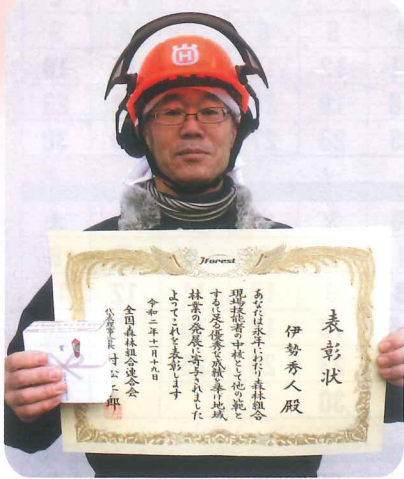 H
JForest
表彰状
伊勢秀人殿
あなたは永年にわたり森林組合
現場技能者の中核として他の範と
するに足る優秀な功績を挙げ地域
林業の発展に寄与されました
よってこれを表彰します
令和二年十一月十九日
全国森林組合連合会
代表理事会長 村松二郎